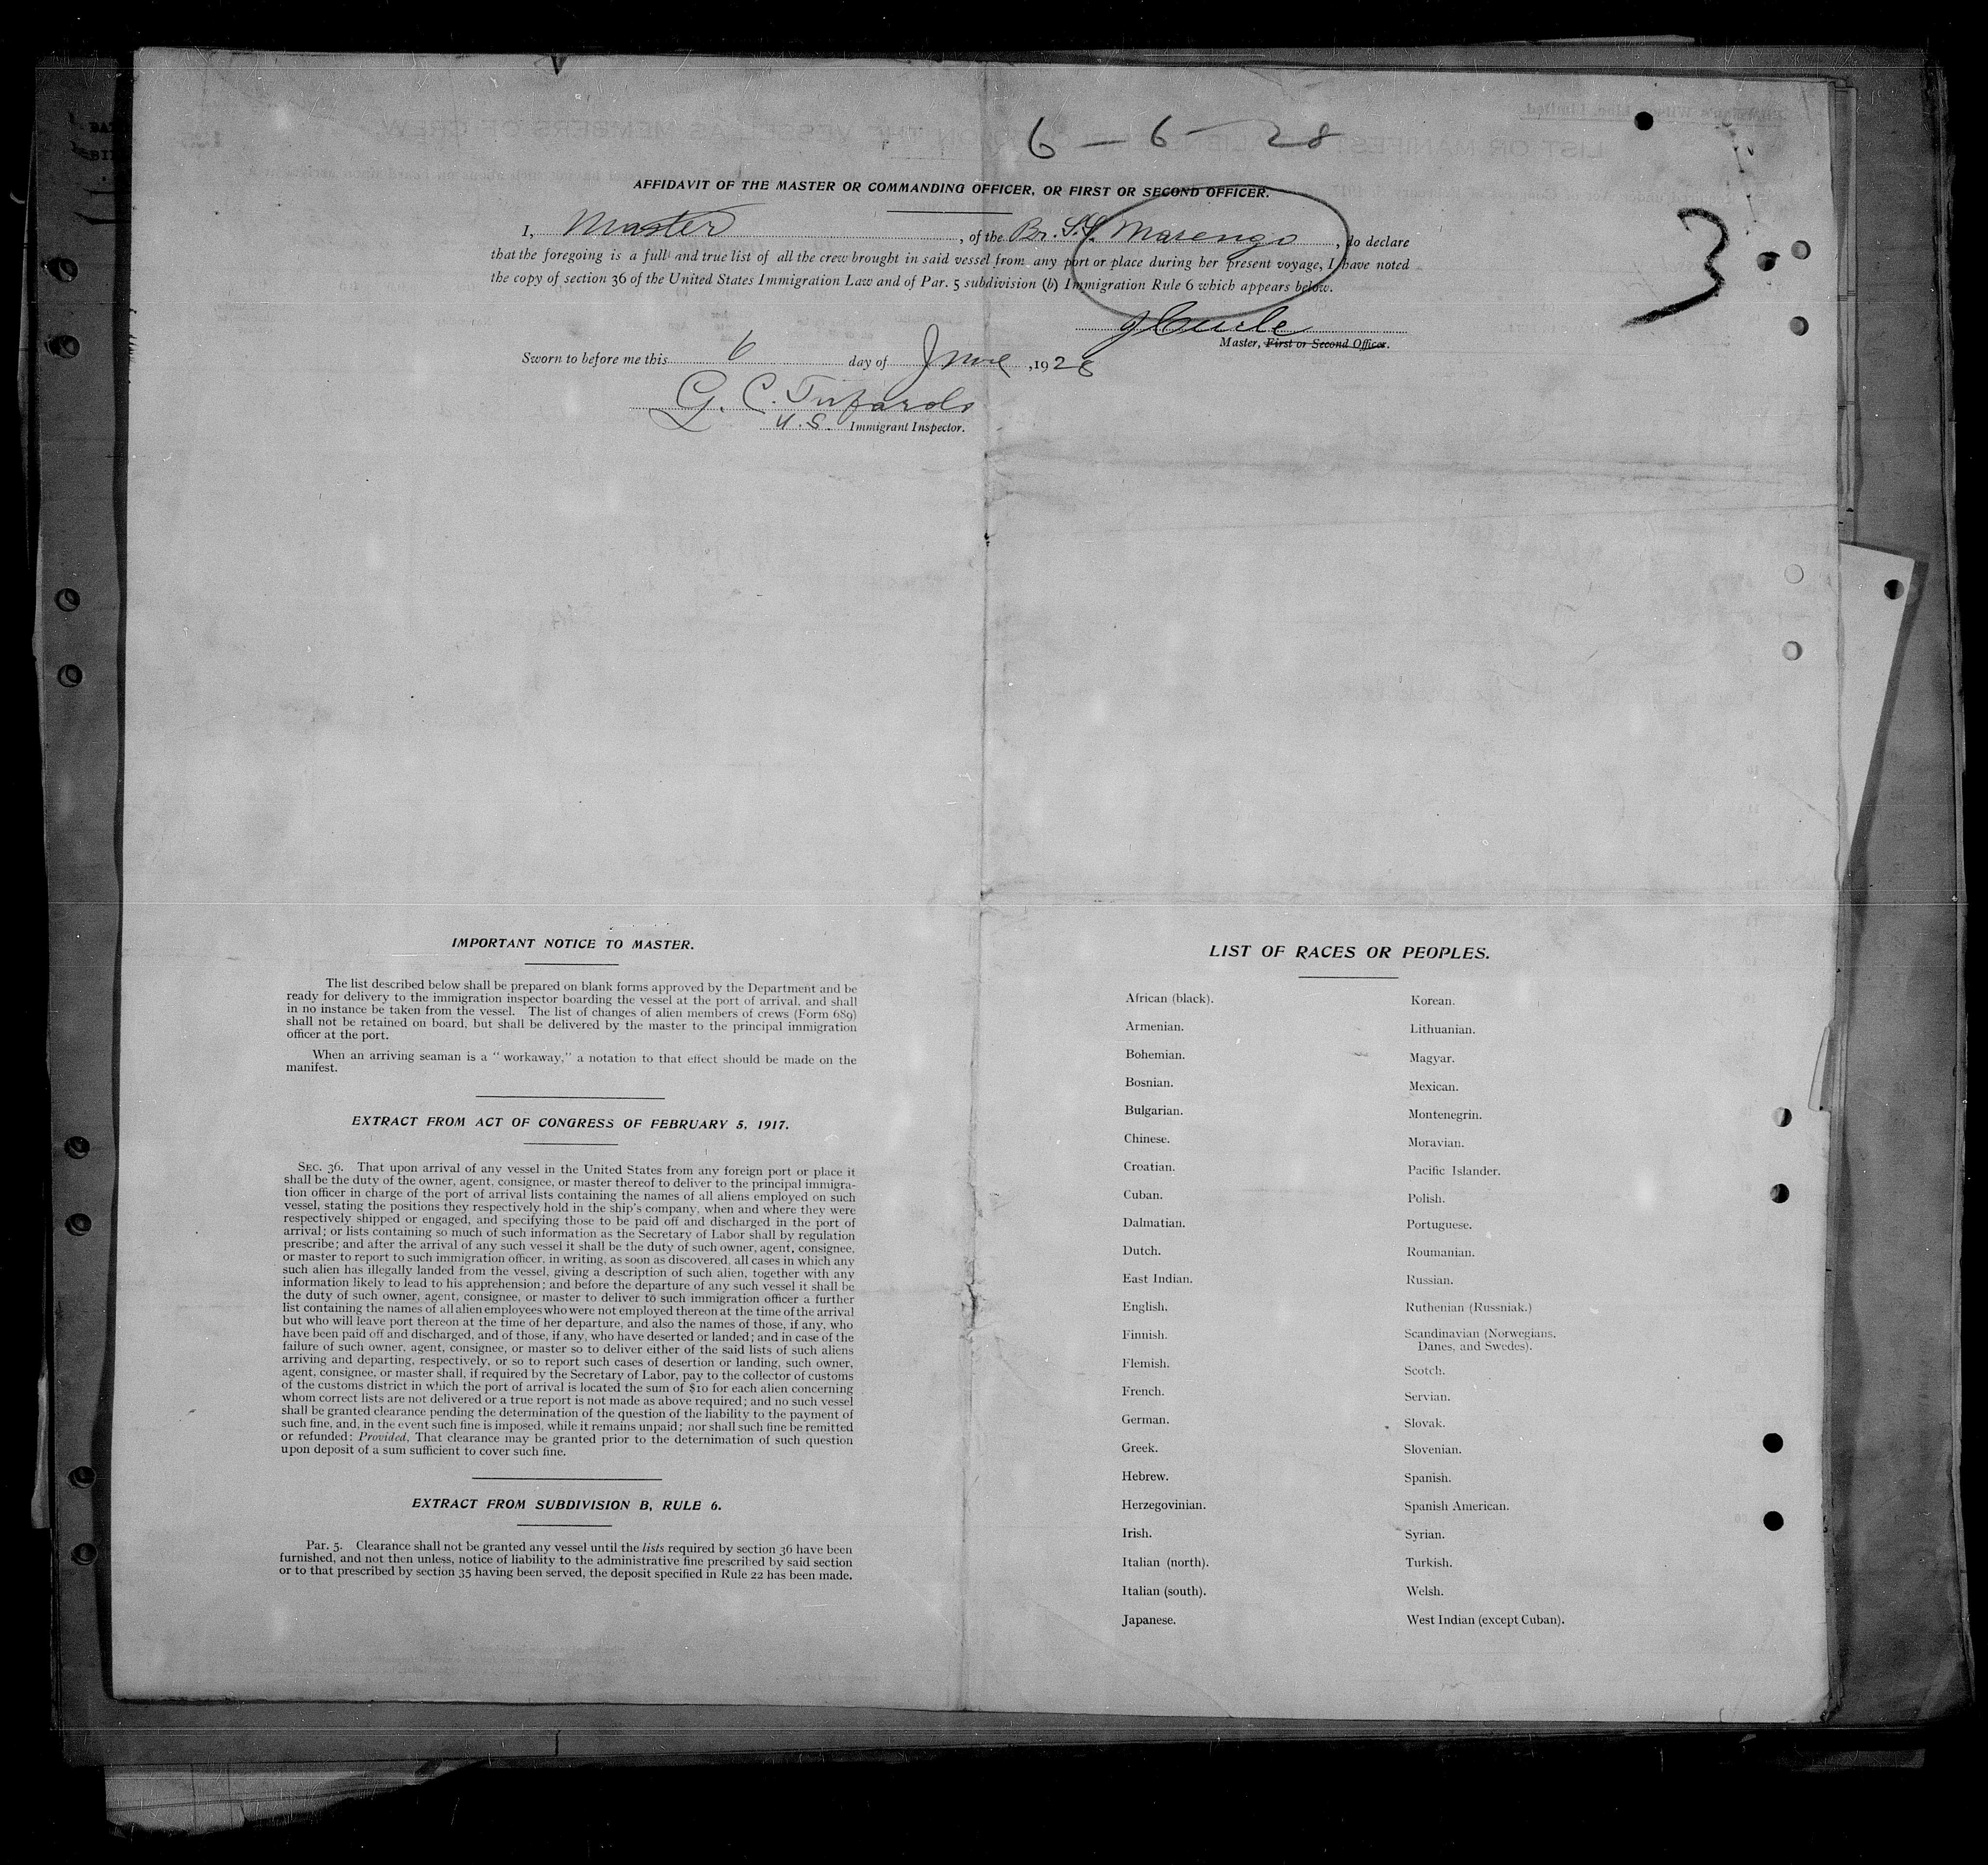 6 — 6 — 28
3
AFFIDAVIT OF THE MASTER OR COMMANDING OFFICER, OR FIRST OR SECOND OFFICER.
I, Master, of the Br. S.S. Marengo, do declare
that the foregoing is a full and true list of all the crew brought in said vessel from any port or place during her present voyage, I have noted
the copy of section 36 of the United States Immigration Law and of Par. 5 subdivision (b) Immigration Rule 6 which appears below.
Master, First or Second Officer.
Sworn to before me this 6 day of June, 1928
G. C.
U.S. Immigrant Inspector.
IMPORTANT NOTICE TO MASTER.
The list described below shall be prepared on blank forms approved by the Department and be
ready for delivery to the immigration inspector boarding the vessel at the port of arrival, and shall
in no instance be taken from the vessel. The list of changes of alien members of crews (Form 689)
shall not be retained on board, but shall be delivered by the master to the principal immigration
officer at the port.
When an arriving seaman is a " workaway," a notation to that effect should be made on the
manifest.
EXTRACT FROM ACT OF CONGRESS OF FEBRUARY 5, 1917.
SEC. 36. That upon arrival of any vessel in the United States from any foreign port or place it
shall be the duty of the owner, agent, consignee, or master thereof to deliver to the principal immigra-
tion officer in charge of the port of arrival lists containing the names of all aliens employed on such
vessel, stating the positions they respectively hold in the ship's company, when and where they were
respectively shipped or engaged, and specifying those to be paid off and discharged in the port of
arrival; or lists containing so much of such information as the Secretary of Labor shall by regulation
prescribe; and after the arrival of any such vessel it shall be the duty of such owner, agent, consignee,
or master to report to such immigration officer, in writing, as soon as discovered, all cases in which any
such alien has illegally landed from the vessel, giving a description of such alien, together with any
information likely to lead to his apprehension; and before the departure of any such vessel it shall be
the duty of such owner, agent, consignee, or master to deliver to such immigration officer a further
list containing the names of all alien employees who were not employed thereon at the time of the arrival
but who will leave port thereon at the time of her departure, and also the names of those, if any, who
have been paid off and discharged, and of those, if any, who have deserted or landed; and in case of the
failure of such owner, agent, consignee, or master so to deliver either of the said lists of such aliens
arriving and departing, respectively, or so to report such cases of desertion or landing, such owner,
agent, consignee, or master shall, if required by the Secretary of Labor, pay to the collector of customs
of the customs district in which the port of arrival is located the sum of $10 for each alien concerning
whom correct lists are not delivered or a true report is not made as above required; and no such vessel
shall be granted clearance pending the determination of the question of the liability to the payment of
such fine, and, in the event such fine is imposed, while it remains unpaid; nor shall such fine be remitted
or refunded: Provided, That clearance may be granted prior to the deternimation of such question
upon deposit of a sum sufficient to cover such fine.
EXTRACT FROM SUBDIVISION B, RULE 6.
Par. 5. Clearance shall not be granted any vessel until the lists required by section 36 have been
furnished, and not then unless, notice of liability to the administrative fine prescribed by said section
or to that prescribed by section 35 having been served, the deposit specified in Rule 22 has been made.
LIST OF RACES OR PEOPLES.
African (black).
Armenian.
Bohemian.
Bosnian.
Bulgarian.
Chinese.
Croatian.
Cuban.
Dalmatian.
Dutch.
East Indian.
English.
Finnish.
Flemish.
French.
German.
Greek.
Hebrew.
Herzegovinian.
Irish.
Italian (north).
Italian (south).
Japanese.
Korean.
Lithuanian.
Magyar.
Mexican.
Montenegrin.
Moravian.
Pacific Islander.
Polish.
Portuguese.
Roumanian.
Russian.
Ruthenian (Russniak.)
Scandinavian (Norwegians,
Danes, and Swedes).
Scotch.
Servian.
Slovak.
Slovenian.
Spanish.
Spanish American.
Syrian.
Turkish.
Welsh.
West Indian (except Cuban).